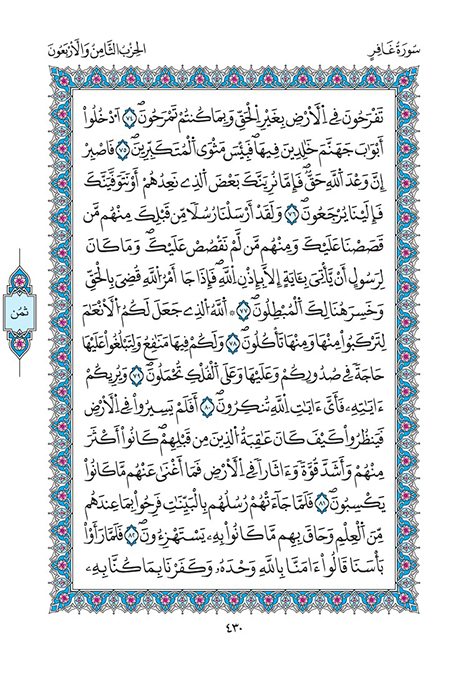 سُورَةُ غَافِرٍ
الحِزْبُ الثَّامِنُ وَالْأَرْبَعُونَ
تَفْرَحُونَ فِے اِ۬لْأَرْضِ بِغَيْرِ اِ۬لْحَقِّ وَبِمَا كُنتُمْ تَمْرَحُونَۖ ٧٤ اَ۟دْخُلُوٓاْ
أَبْوَٰبَ جَهَنَّمَ خَٰلِدِينَ فِيهَاۖ فَبِئْسَ مَثْوَى اَ۬لْمُتَكَبِّرِينَۖ ٧٥ فَاصْبِرِ
اِنَّ وَعْدَ اَ۬للَّهِ حَقّٞۖ فَإِمَّا نُرِيَنَّكَ بَعْضَ اَ۬لذِے نَعِدُهُمُۥٓ أَوْ نَتَوَفَّيَنَّكَ
فَإِلَيْنَا يُرْجَعُونَۖ ٧٦ وَلَقَدَ اَرْسَلْنَا رُسُلاٗ مِّن قَبْلِكَ مِنْهُم مَّن
قَصَصْنَا عَلَيْكَ وَمِنْهُم مَّن لَّمْ نَقْصُصْ عَلَيْكَۖ وَمَا كَانَ
لِرَسُولٍ اَنْ يَّاتِيَ بِـَٔايَةٍ اِلَّا بِإِذْنِ اِ۬للَّهِۖ فَإِذَا جَآءَ امْرُ اُ۬للَّهِ قُضِيَ بِالْحَقِّ
وَخَسِرَ هُنَالِكَ اَ۬لْمُبْطِلُونَۖ ٧٧ اَ۬للَّهُ اُ۬لذِے جَعَلَ لَكُمُ اُ۬لَانْعَٰمَ
لِتَرْكَبُواْ مِنْهَا وَمِنْهَا تَاكُلُونَۖ ٧٨ وَلَكُمْ فِيهَا مَنَٰفِعُ وَلِتَبْلُغُواْ عَلَيْهَا
حَاجَةٗ فِے صُدُورِكُمْ وَعَلَيْهَا وَعَلَى اَ۬لْفُلْكِ تُحْمَلُونَۖ ٧٩ وَيُرِيكُمُۥٓ
ءَايَٰتِهِۦ فَأَيَّ ءَايَٰتِ اِ۬للَّهِ تُنكِرُونَۖ ٨٠ أَفَلَمْ يَسِيرُواْ فِے اِ۬لْأَرْضِ
فَيَنظُرُواْ كَيْفَ كَانَ عَٰقِبَةُ اُ۬لذِينَ مِن قَبْلِهِمْۖ كَانُوٓاْ أَكْثَرَ
مِنْهُمْ وَأَشَدَّ قُوَّةٗ وَءَاثَاراٗ فِے اِ۬لْأَرْضِ فَمَآ أَغْنَىٰ عَنْهُم مَّا كَانُواْ
يَكْسِبُونَۖ ٨١ فَلَمَّا جَآءَتْهُمْ رُسُلُهُم بِالْبَيِّنَٰتِ فَرِحُواْ بِمَا عِندَهُم
مِّنَ اَ۬لْعِلْمِ وَحَاقَ بِهِم مَّا كَانُواْ بِهِۦ يَسْتَهْزِءُونَۖ ٨٢ فَلَمَّا رَأَوْاْ
بَأْسَنَا قَالُوٓاْ ءَامَنَّا بِاللَّهِ وَحْدَهُۥ وَكَفَرْنَا بِمَا كُنَّا بِهِۦ
ثُمُن
٤٣٠